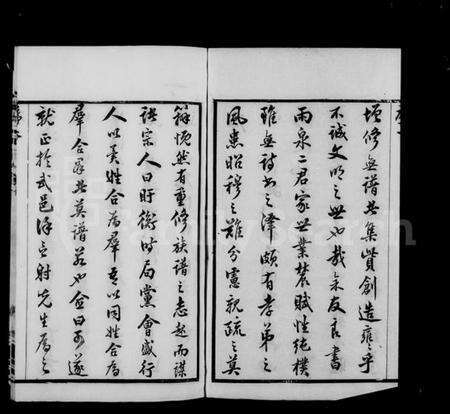 增修無譜共集賢創造雍雍乎
不誠文明之世也哉余友有書
雨泉二君家世業農賦性純樸
雖無詩書之澤頗有孝弟之
風患昭穆之難分憲親疏之莫
辭慨然有重修族譜之志起而謀
諸宗人曰盱衡時局黨會盛行
人以異姓合為群吾以同姓合為
群合群共莫譜若也僉曰可遂
就正於武邑澤臣射先生為之